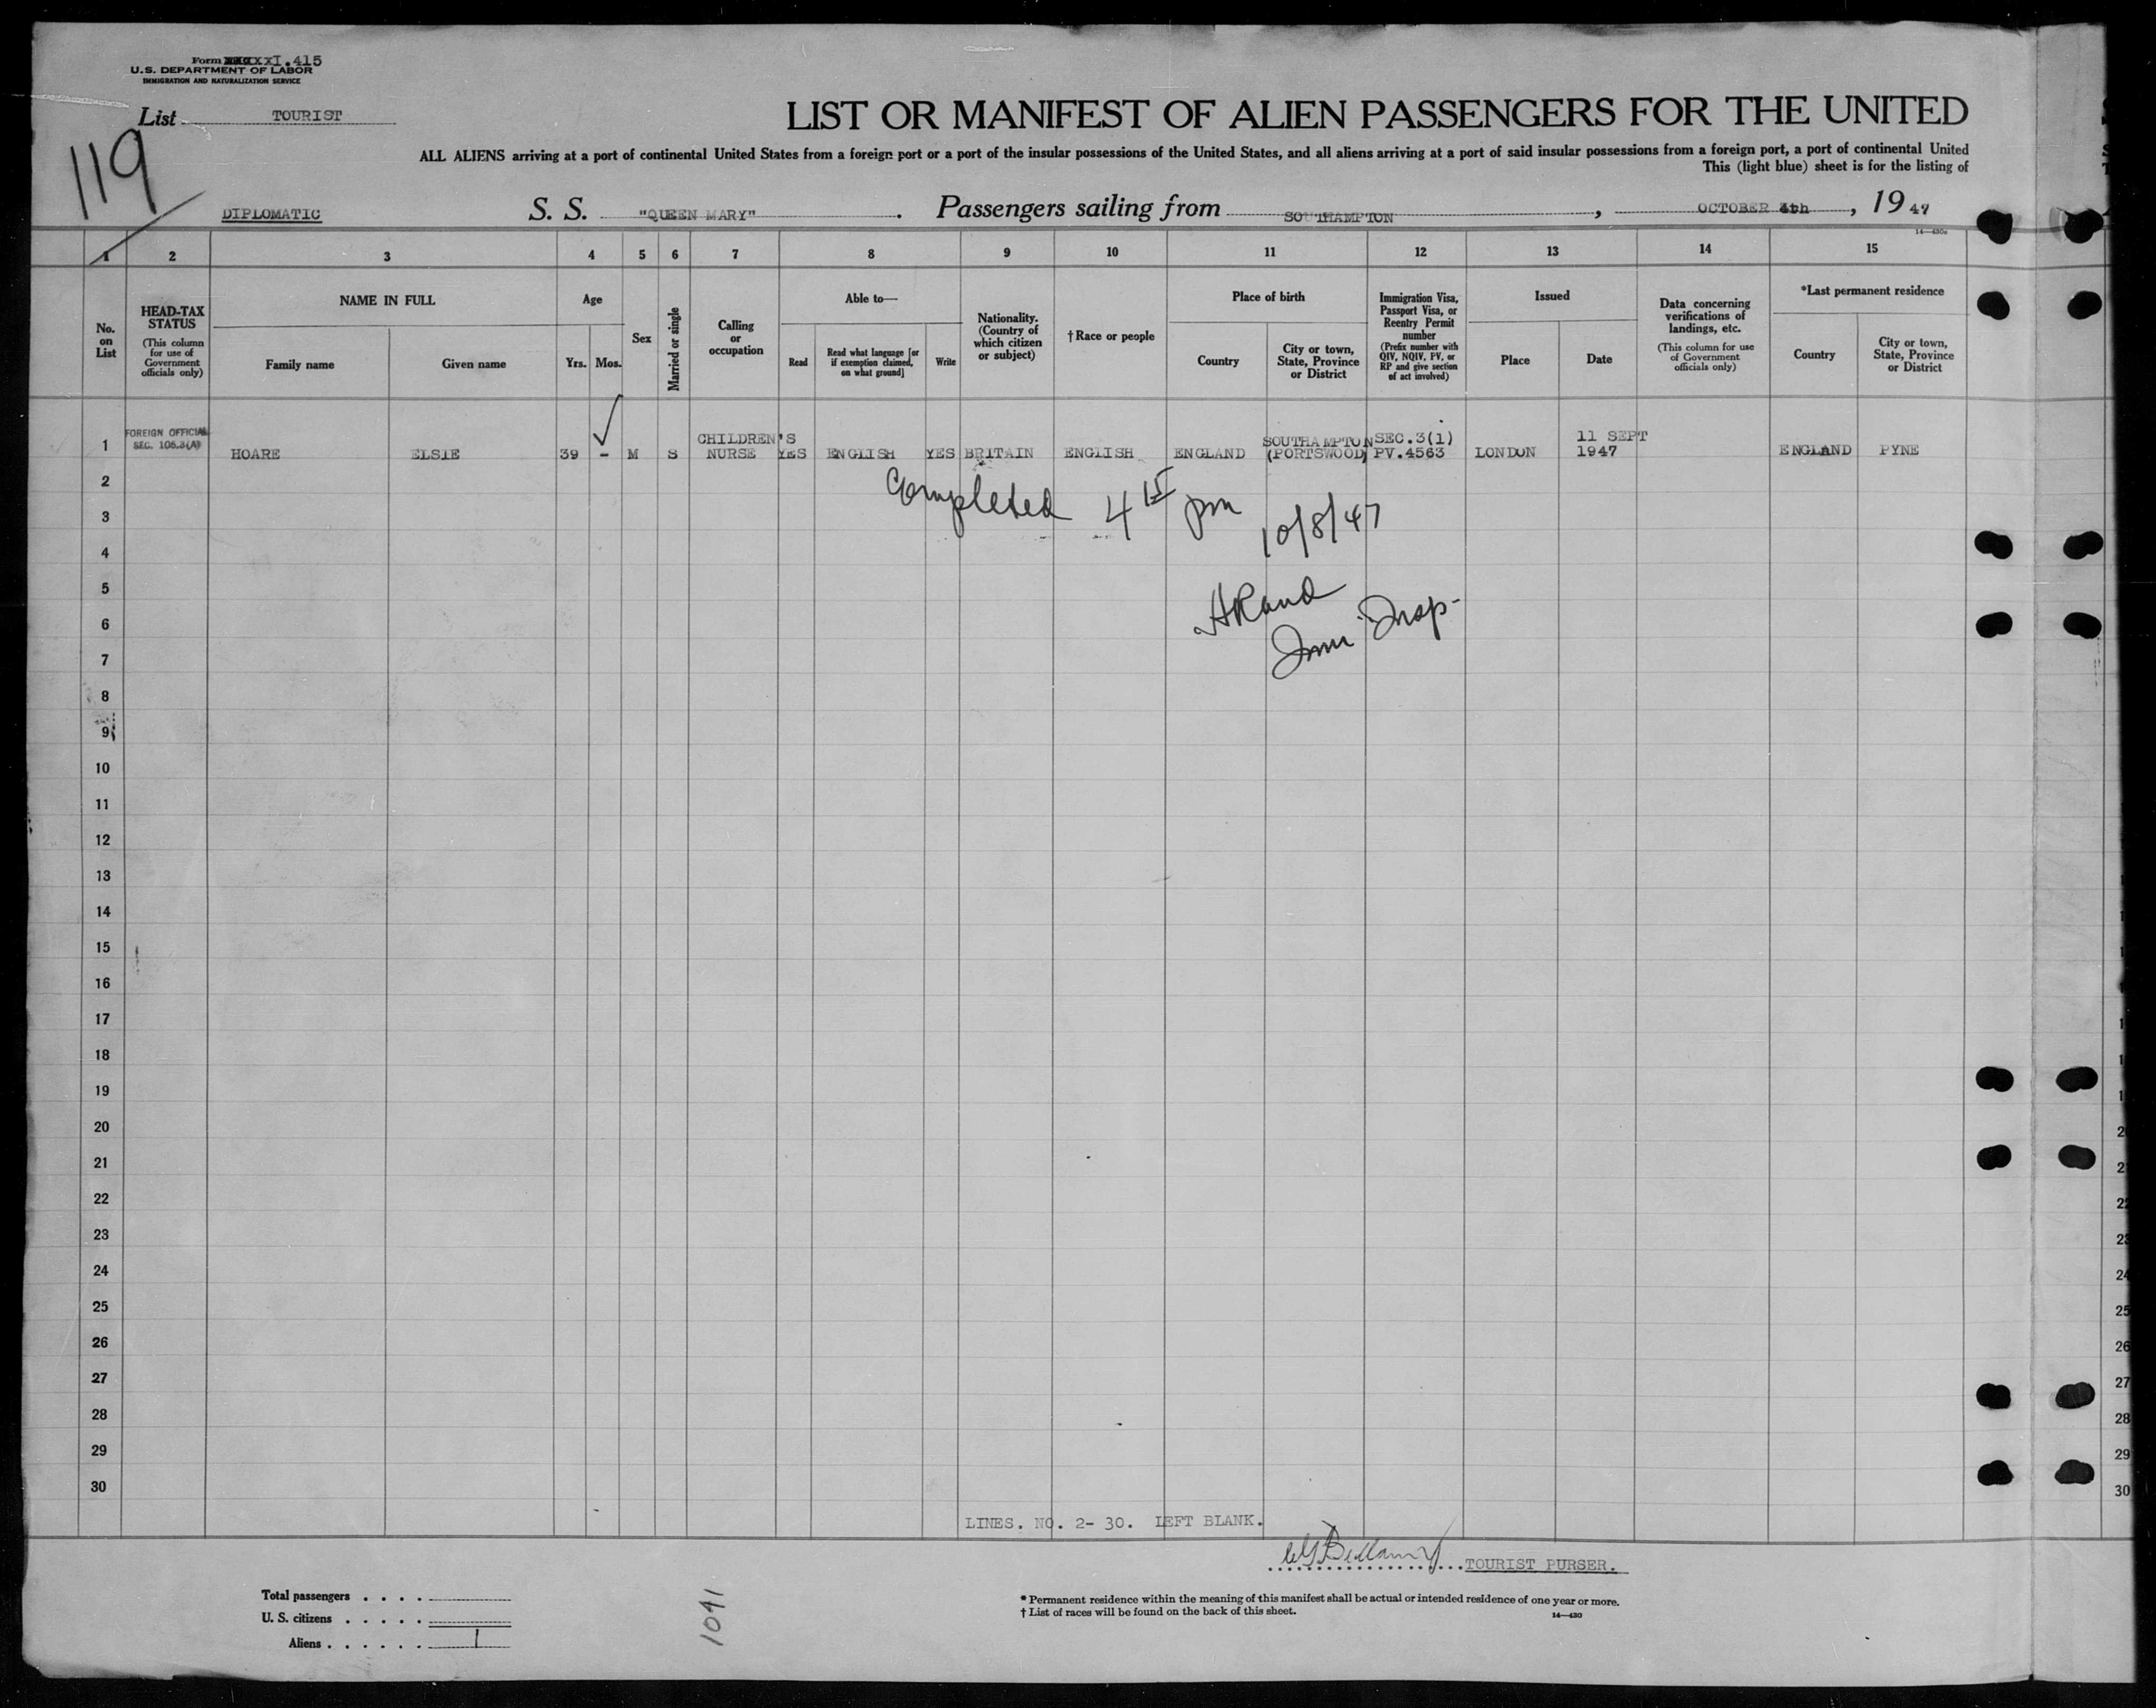 Form XXXXXI.415
U.S. DEPARTMENT OF LABOR
IMMIGRATION AND NATURALIZATION SERVICE
List TOURIST
119
LIST OR MANIFEST OF ALIEN PASSENGERS FOR THE UNITED
ALL ALIENS arriving at a port of continental United States from a foreign port or a port of the insular possessions of the United States, and all aliens arriving at a port of said insular possessions from a foreign port, a port of continental United
This (light blue) sheet is for the listing of
DIPLOMATIC S. S. "QUEEN MARY". Passengers sailing from SOUTHAMPTON, OCTOBER 4th, 1947
14—430a
1 2 3 4 5 6 7 8 9 10 11 12 13 14 15
No. on List
HEAD-TAX STATUS
(This column for use of Government officials only)
NAME IN FULL
Family name
Given name
Age
Yrs. Mos.
Sex
Married or single
Calling or occupation
Able to—
Read
Read what language [or if exemption claimed, on what ground]
Write
Nationality. (Country of which citizen or subject)
† Race or people
Place of birth
Country
City or town, State, Province or District
Immigration Visa, Passport Visa, or Reentry Permit number
(Prefix number with QIV, NQIV, PV, or RP and give section of act involved)
Issued
Place
Date
Data concerning verifications of landings, etc.
(This column for use of Government officials only)
*Last permanent residence
Country
City or town, State, Province or District
FOREIGN OFFICIAL
SEC. 105.3(A)
CHILDREN'S SOUTHAMPTON SEC.3(1) 11 SEPT
1 HOARE ELSIE 39 - M S NURSE YES ENGLISH YES BRITAIN ENGLISH ENGLAND (PORTSWOOD) PV.4563 LONDON 1947 ENGLAND PYNE
2
Completed 4 15 pm
3
10/8/47
4
5
HRand
6
Imm Insp-
7
8
9
10
11
12
13
14
15
16
17
18
19
20
21
22
23
24
25
26
27
28
29
30
LINES. NO. 2- 30. LEFT BLANK.
Bellamy TOURIST PURSER.
Total passengers . . . .
U. S. citizens . . . . .
Aliens . . . . . . 1
1091
* Permanent residence within the meaning of this manifest shall be actual or intended residence of one year or more.
† List of races will be found on the back of this sheet.
14—430